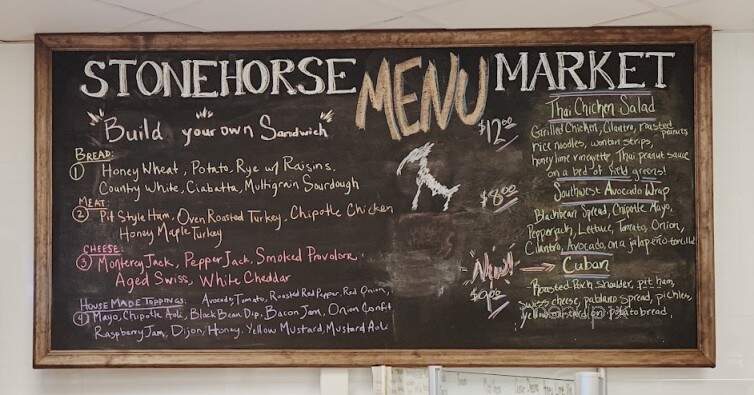 STONEHORSE MENU MARKET
"Build your own Sandwich"
BREAD:
1 Honey Wheat, Potato, Rye w/ Raisins,
Country White, Ciabatta, Multigrain Sourdough
MEAT:
2 Pit Style Ham, Oven Roasted Turkey, Chipotle Chicken
Honey Maple Turkey
CHEESE:
3 Monterey Jack, Pepper Jack, Smoked Provolone
Aged Swiss, White Cheddar
HOUSE MADE TOPPINGS: Avocado, Tomato, Roasted Red Pepper, Red Onion,
4 Mayo, Chipotle Aoli, Black Bean Dip, Bacon Jam, Onion Confit
Raspberry Jam, Dijon, Honey, Yellow Mustard, Mustard Aoli
Thai Chicken Salad
$12.00
Grilled Chicken, Cilantro, roasted peanuts
rice noodles, wonton strips,
honey lime vinegrette, Thai peanut sauce
on a bed of field greens!
Southwest Avocado Wrap
$8.00
Blackbean Spread, Chipotle Mayo,
Pepperjack, Lettuce, Tomato, Onion,
Cilantro, Avocado, on a jalapeño tortilla
New!! → Cuban
$9.00
Roasted Pork Shoulder, pit ham,
Swiss cheese, poblano spread, pickles,
yellow mustard on potato bread,